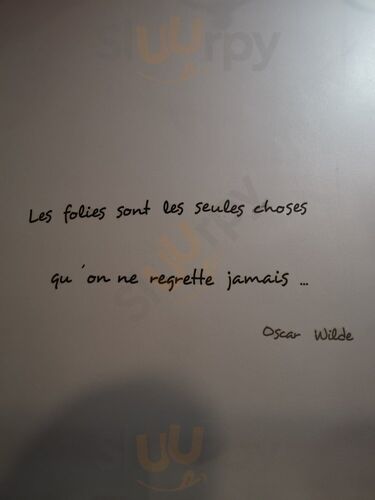 sluurpy
Les folies sont les seules choses
sluurpy
qu'on ne regrette jamais ...
Oscar Wilde
sluurpy